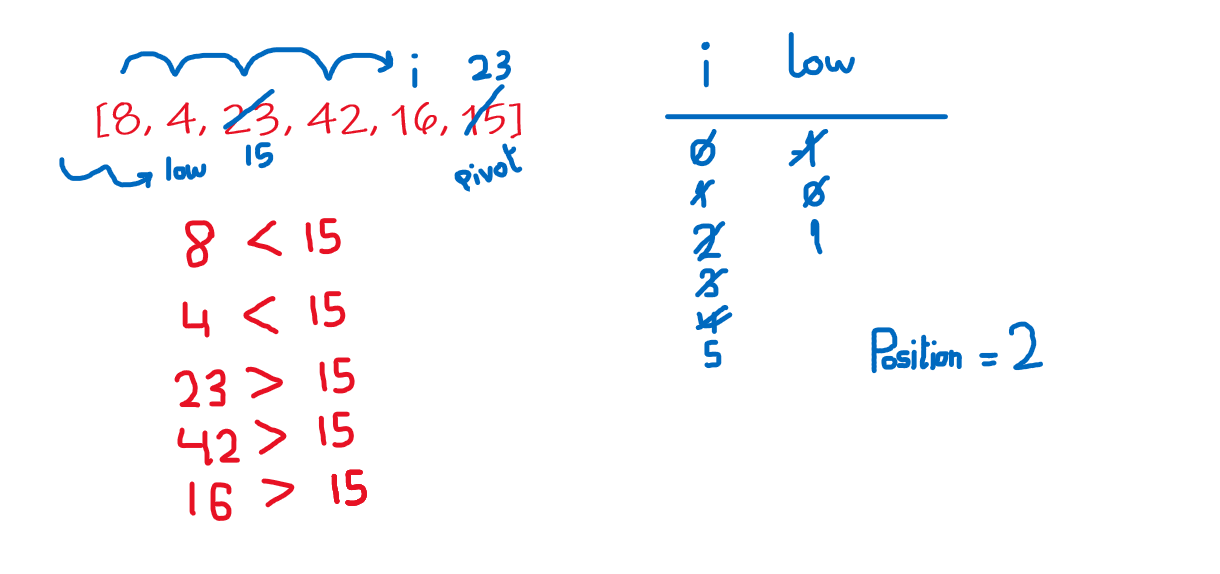 i 23
[8, 4, 23, 42, 16, 15]
low 15 pivot
8 < 15
4 < 15
23 > 15
42 > 15
16 > 15
i low
0 -1
1 0
2 1
3
4
5
Position = 2